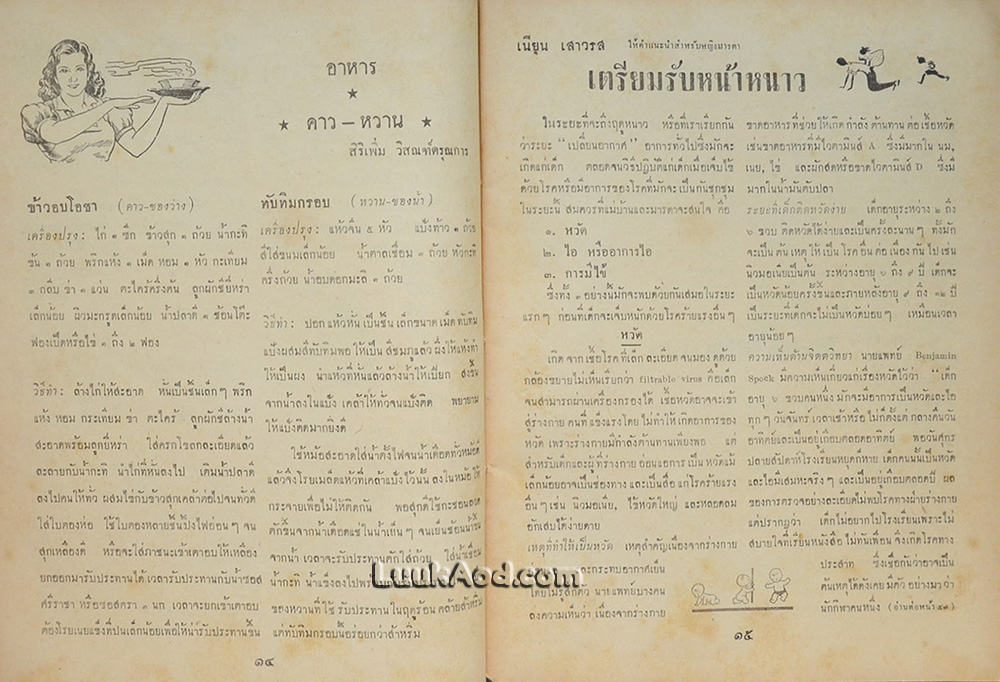 อาหาร
★
★ คาว – หวาน ★
สิริเพิ่ม วิสณฑ์ดรุณการ
ข้าวอบโอชา (คาว-ของว่าง)
เครื่องปรุง: ไก่ ๑ ซีก ข้าวสุก ๑ ถ้วย น้ำกะทิ
ข้น ๑ ถ้วย พริกแห้ง ๑ เม็ด หอม ๑ หัว กะเทียม
๑ กลีบ ข่า ๑ แว่น ตะไคร้ครึ่งต้น ลูกผักชียี่หร่า
เล็กน้อย ผิวมะกรูดเล็กน้อย น้ำปลาดี ๑ ช้อนโต๊ะ
ฟองเป็ดหรือไข่ ๑ ถึง ๒ ฟอง
วิธีทำ: ล้างไก่ให้สะอาด หั่นเป็นชิ้นเล็กๆ พริก
แห้ง หอม กระเทียม ข่า ตะไคร้ ลูกผักชีล้างน้ำ
สะอาดพร้อมลูกยี่หร่า ใส่ครกโขลกละเอียดแล้ว
ละลายกับน้ำกะทิ นำไก่ที่หั่นลงไป เติมน้ำปลาดี
ลงไปคนให้ทั่ว ผสมไข่กับข้าวสุกเคล้าต่อไปจนทั่วดี
ใส่ใบตองห่อ ใช้ใบตองหลายชั้นปิ้งไฟอ่อนๆ จน
สุกเหลืองดี หรือจะใส่ภาชนะเข้าเตาอบให้เหลือง
ยกออกมารับประทานได้ เวลารับประทานกับน้ำซอส
ศรีราชา หรือซอสตรา ๑ นก เวลาจะยกเข้าเตาอบ
ต้องโรยเนยแข็งที่ป่นเล็กน้อยเพื่อให้น่ารับประทานขึ้น
๑๔
ทับทิมกรอบ (หวาน-ของน้ำ)
เครื่องปรุง: แห้วจีน ๕ หัว แป้งท้าว ๑ ถ้วย
สีใส่ขนมเล็กน้อย น้ำตาลเชื่อม ๑ ถ้วย หัวกะทิ
ครึ่งถ้วย น้ำอบดอกมะลิ ๑ ถ้วย
วิธีทำ: ปอกแห้วหั่นเป็นชิ้นเล็กขนาดเม็ดทับทิม
แป้งผสมสีทับทิมพอให้เป็นสีชมภูแล้วผึ่งให้แห้งทำ
ให้เป็นผง นำแห้วที่หั่นแล้วล้างน้ำให้เปียก สงขึ้น
จากน้ำลงในแป้ง เคล้าให้ทั่วจนแป้งติด พยายาม
ให้แป้งติดมากยิ่งดี
ใช้หม้อสะอาดใส่น้ำตั้งไฟจนน้ำเดือดทั่วหม้อดี
แล้วจึงโรยเมล็ดแห้วที่เคล้าแป้งไว้นั้น ลงในหม้อให้
กระจายเพื่อไม่ให้ติดกัน พอสุกดีใช้กะชอนลวด
ตักขึ้นจากน้ำเดือดแช่ในน้ำเย็นๆ จนเย็นช้อนน้ำขึ้น
จากน้ำ เวลาจะรับประทานตักใส่ถ้วย ใส่น้ำเชื่อม
น้ำกะทิ น้ำแข็งลงไปพร้อม
ของหวานที่ใช้รับประทานในฤดูร้อน คล้ายสำหริ่ม
แต่ทับทิมกรอบนี้อร่อยกว่าสำหริ่ม
เนียน เสาวรส ให้คำแนะนำสำหรับหญิงมารดา
เตรียมรับหน้าหนาว
ในระยะที่จะถึงฤดูหนาว หรือที่เราเรียกกัน
ว่าระยะ "เปลี่ยนอากาศ" อาการทั่วไปซึ่งมักจะ
เกิดแก่เด็ก ตลอดจนวิธีปฏิบัติแก่เด็กเมื่อเจ็บไข้
ด้วยโรคหรือมีอาการของโรคที่มักจะเป็นกันชุกชุม
ในระยะนี้ สมควรที่แม่บ้านและมารดาจะสนใจ คือ
๑. หวัด
๒. ไอ หรืออาการไอ
๓. การมีไข้
ซึ่งทั้ง ๓ อย่างนี้มักจะพบด้วยกันเสมอในระยะ
แรกๆ ก่อนที่เด็กจะเจ็บหนักด้วยโรคร้ายแรงอื่นๆ
หวัด
เกิดจากเชื้อโรคที่เล็กละเอียดจนมองดูด้วย
กล้องขยายไม่เห็นเรียกว่า filtrable virus คือเล็ก
จนสามารถผ่านเครื่องกรองได้ เชื้อหวัดอาจจะเข้า
สู่ร่างกาย คนที่แข็งแรงโดยไม่ทำให้เกิดอาการของ
หวัด เพราะร่างกายมีกำลังต้านทานเพียงพอ แต่
สำหรับเด็กและผู้ที่ร่างกายอ่อนแอการเป็นหวัดแม้
เล็กน้อยอาจเป็นช่องทาง และเป็นสื่อแก่โรคร้ายแรง
อื่นๆ เช่น นิวมอเนีย, ไข้หวัดใหญ่ และหลอดลม
อักเสบได้ง่ายดาย
เหตุที่ทำให้เป็นหวัด เหตุสำคัญเนื่องจากร่างกาย
และกระทบอากาศเย็น
โดยไม่รู้สึกตัว นายแพทย์บางคน
ลงความเห็นว่า เนื่องจากร่างกาย
ขาดอาหารที่ช่วยให้เกิดกำลังต้านทานต่อเชื้อหวัด
เช่นขาดอาหารที่มีไวตามินส์ A ซึ่งมีมากใน นม,
เนย, ไข่ และผักสดหรือขาดไวตามินส์ D ซึ่งมี
มากในน้ำมันตับปลา
ระยะที่เด็กติดหวัดง่าย เด็กอายุระหว่าง ๒ ถึง
๖ ขวบ ติดหวัดได้ง่ายและเป็นครั้งละนานๆ ทั้งมัก
จะเป็นต้นเหตุให้เป็นโรคอื่นต่อเนื่องกันไป เช่น
นิวมอเนียเป็นต้น ระหว่างอายุ ๖ ถึง ๙ ปี เด็กจะ
เป็นหวัดน้อยครั้งขึ้นและภายหลังอายุ ๙ ถึง ๑๒ ปี
เป็นระยะที่เด็กจะไม่เป็นหวัดบ่อยๆ เหมือนเวลา
อายุน้อยๆ
ความเห็นด้านจิตตวิทยา นายแพทย์ Benjamin
Spock มีความเห็นเกี่ยวแก่เรื่องหวัดไว้ว่า "เด็ก
อายุ ๖ ขวบคนหนึ่ง มักจะมีอาการเป็นหวัดและไอ
ทุกๆ วันจันทร์ เวลาเช้าหรือ ไม่ก็ตั้งแต่กลางคืนวัน
อาทิตย์และเป็นอยู่เกือบตลอดอาทิตย์ พอวันศุกร์
ปลายสัปดาห์โรงเรียนหยุดกหาย เด็กคนนั้นเป็นหวัด
และไอมีเสมหะจริงๆ และเป็นอยู่เกือบตลอดปี ผล
ของการตรวจอย่างละเอียดไม่พบโรคทางฝ่ายร่างกาย
แต่ปรากฏว่า เด็กไม่อยากไปโรงเรียนเพราะไม่
สบายใจที่เรียนหนังสือ ไม่ทันเพื่อน จึงเกิดโรคทาง
ประสาท ซึ่งเชื่อกันว่าอาจเป็น
ต้นเหตุได้ดังเคย มีตัว อย่างมาว่า
นักกีฬาคนหนึ่ง (อ่านต่อหน้า ๕๓)
๑๕
LuukAod.com